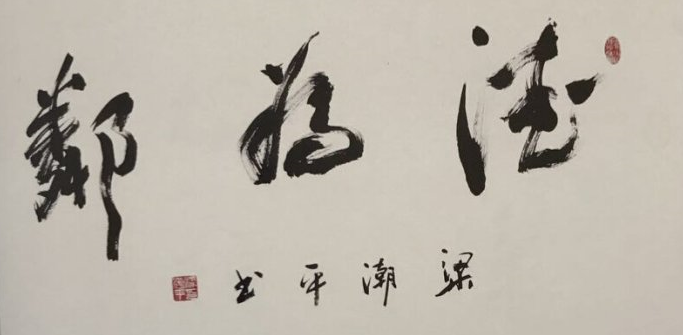 德为鄰
梁潮平书